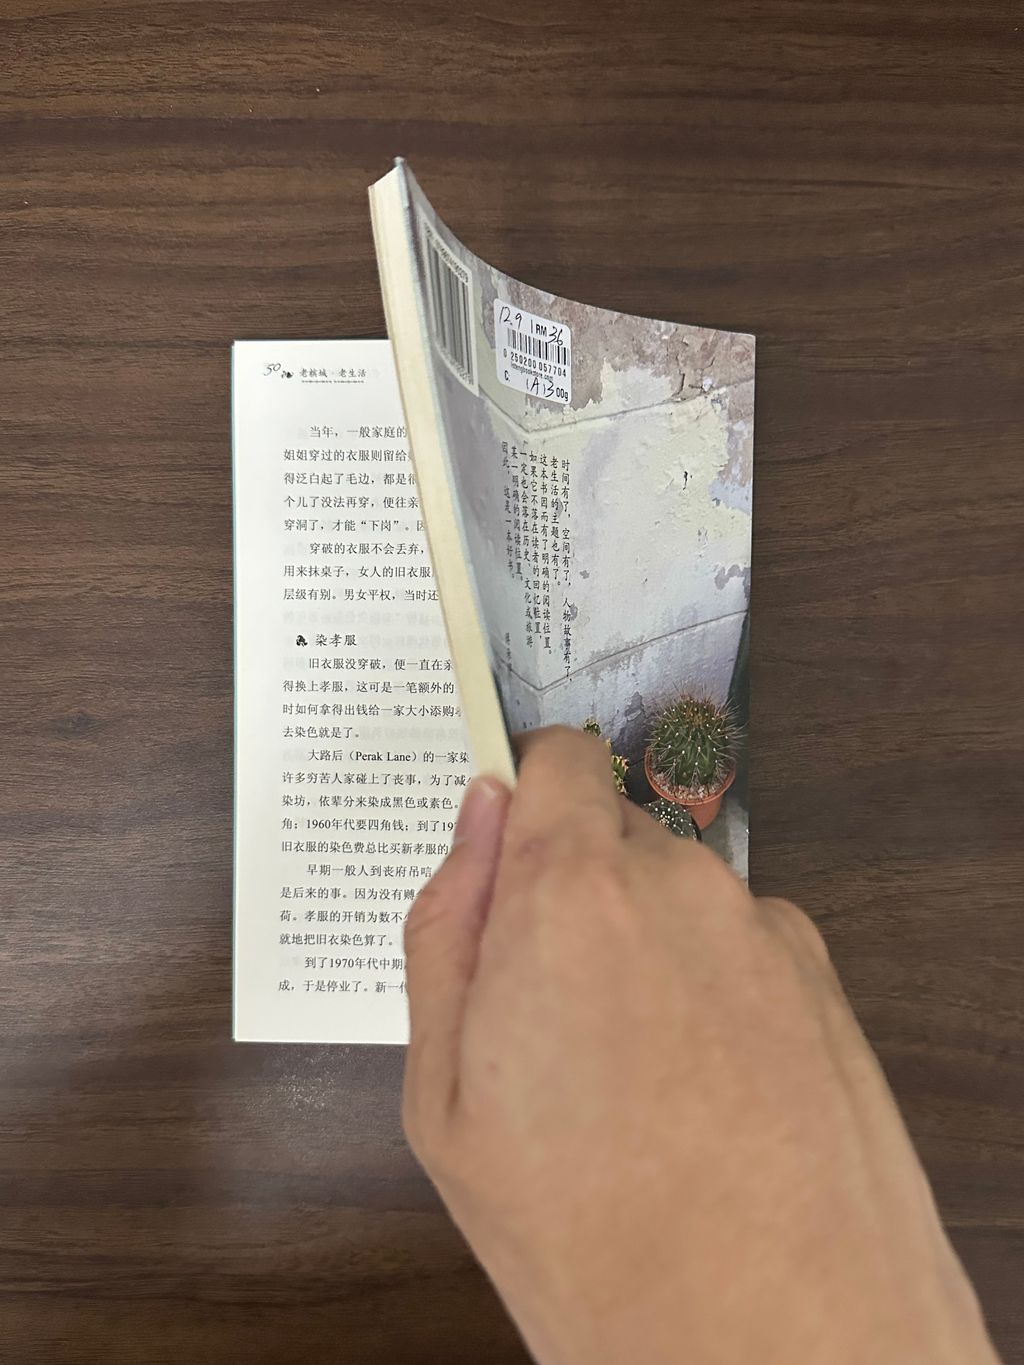 50 老槟城·老生活
当年，一般家庭的
姐姐穿过的衣服则留给
得泛白起了毛边，都是
个儿了没法再穿，便往亲
穿洞了，才能“下岗”。因
穿破的衣服不会丢弃，
用来抹桌子，女人的旧衣服
层级有别。男女平权，当时还
染孝服
旧衣服没穿破，便一直在亲
得换上孝服，这可是一笔额外的
时如何拿得出钱给一家大小添购
去染色就是了。
大路后（Perak Lane）的一家染
许多穷苦人家碰上了丧事，为了减
染坊，依辈分来染成黑色或素色。
角；1960年代要四角钱；到了19
旧衣服的染色费总比买新孝服的
早期一般人到丧府吊唁
是后来的事。因为没有赙
荷。孝服的开销为数不
就地把旧衣染色算了。
到了1970年代中期
成，于是停业了。新一
12.9 RM 36
0 250200 057704
C. (A)3 00g
时间有了，空间有了，人物故事有了，
老生活的主题也有了。
这本书因而有了明确的阅读位置。
如果它不落在读者的回忆位置，
一定也会落在历史、文化或旅游
某一明确的阅读位置。
因此，这是一本好书。